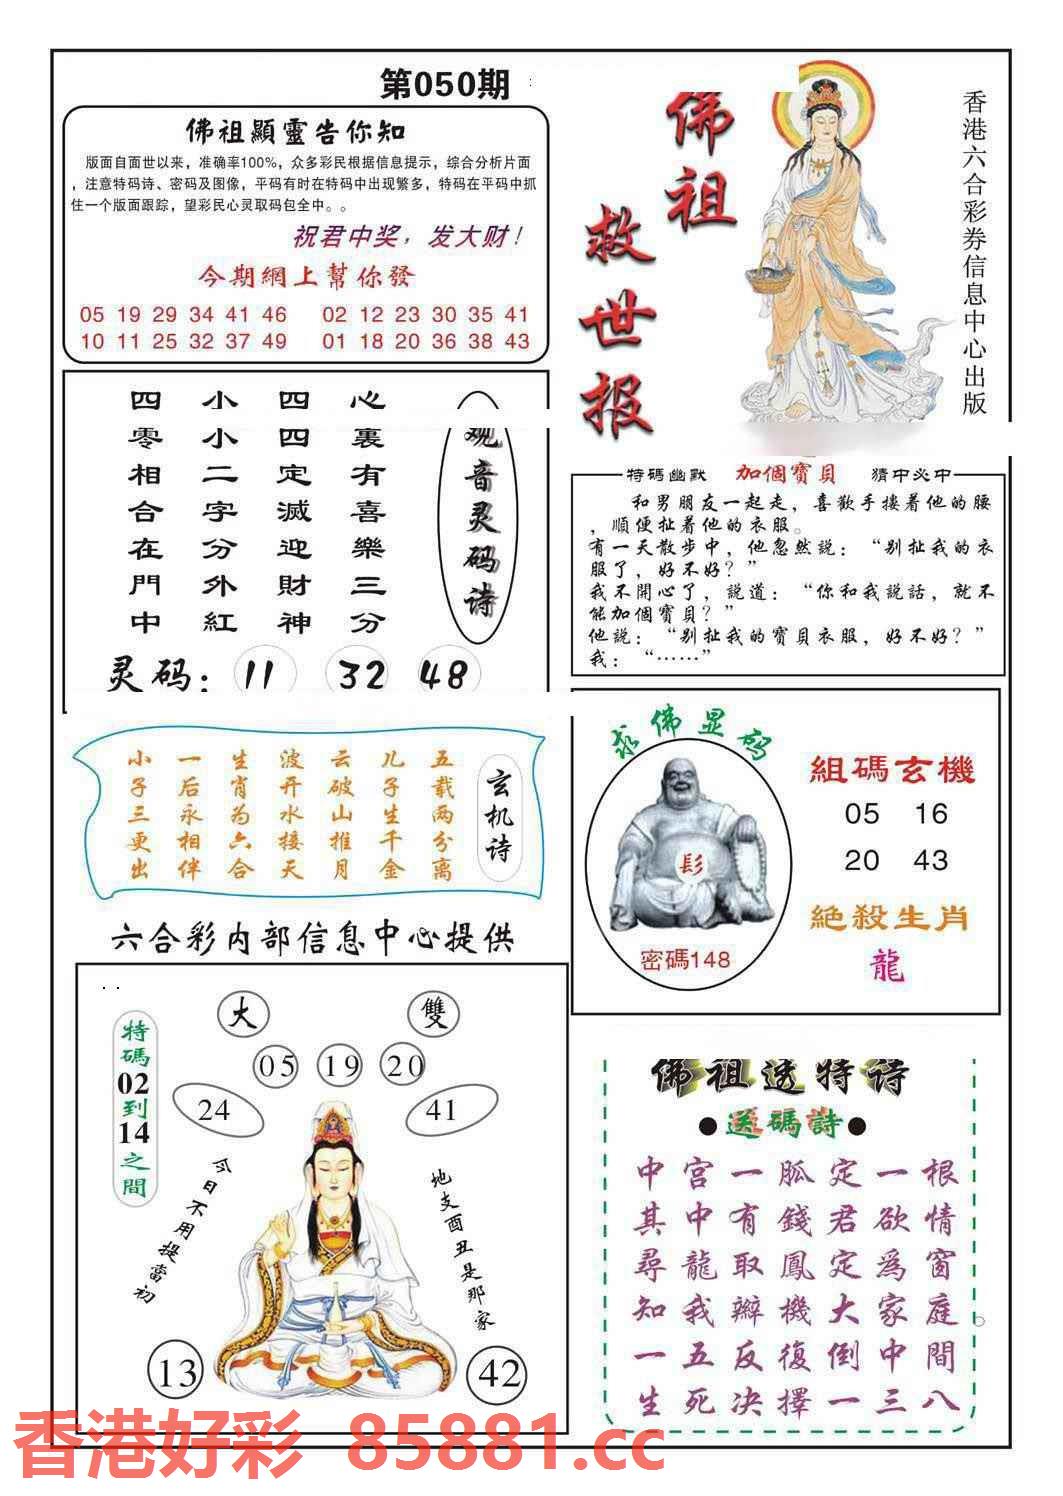 第050期
佛祖顯靈告你知
版面自面世以来，准确率100%，众多彩民根据信息提示，综合分析片面
，注意特码诗、密码及图像，平码有时在特码中出现繁多，特码在平码中抓
住一个版面跟踪，望彩民心灵取码包全中。。
祝君中奖，发大财！
今期網上幫你發
05 19 29 34 41 46 02 12 23 30 35 41
10 11 25 32 37 49 01 18 20 36 38 43
佛祖
救世报
香港六合彩券信息中心出版
观音灵码诗
心裏有喜樂三分
四四定滅迎財神
小小二字分外紅
四零相合在門中
灵码：11 32 48
特碼幽默 加個寶貝 猜中必中
和男朋友一起走，喜歡手摟着他的腰
，順便扯着他的衣服。
有一天散步中，他忽然説：“别扯我的衣
服了，好不好？”
我不開心了，説道：“你和我説話，就不
能加個寶貝？”
他説：“别扯我的寶貝衣服，好不好？”
我：“……”
玄机诗
五载两分离
儿子生千金
云破山推月
波开水接天
生肖为六合
一后永相伴
小子三更出
求佛显码
密碼148
組碼玄機
05 16
20 43
絶殺生肖
龍
六合彩内部信息中心提供
特碼02到14之間
大 雙
05 19 20
24 41
今日不用提當初
地支酉丑是那家
13 42
佛祖透特诗
●送碼詩●
根情窗庭間八
一欲爲家中三
定君定大倒一
胍錢鳳機復擇
一有取辦反决
宮中龍我五死
中其尋知一生
香港好彩 85881.cc